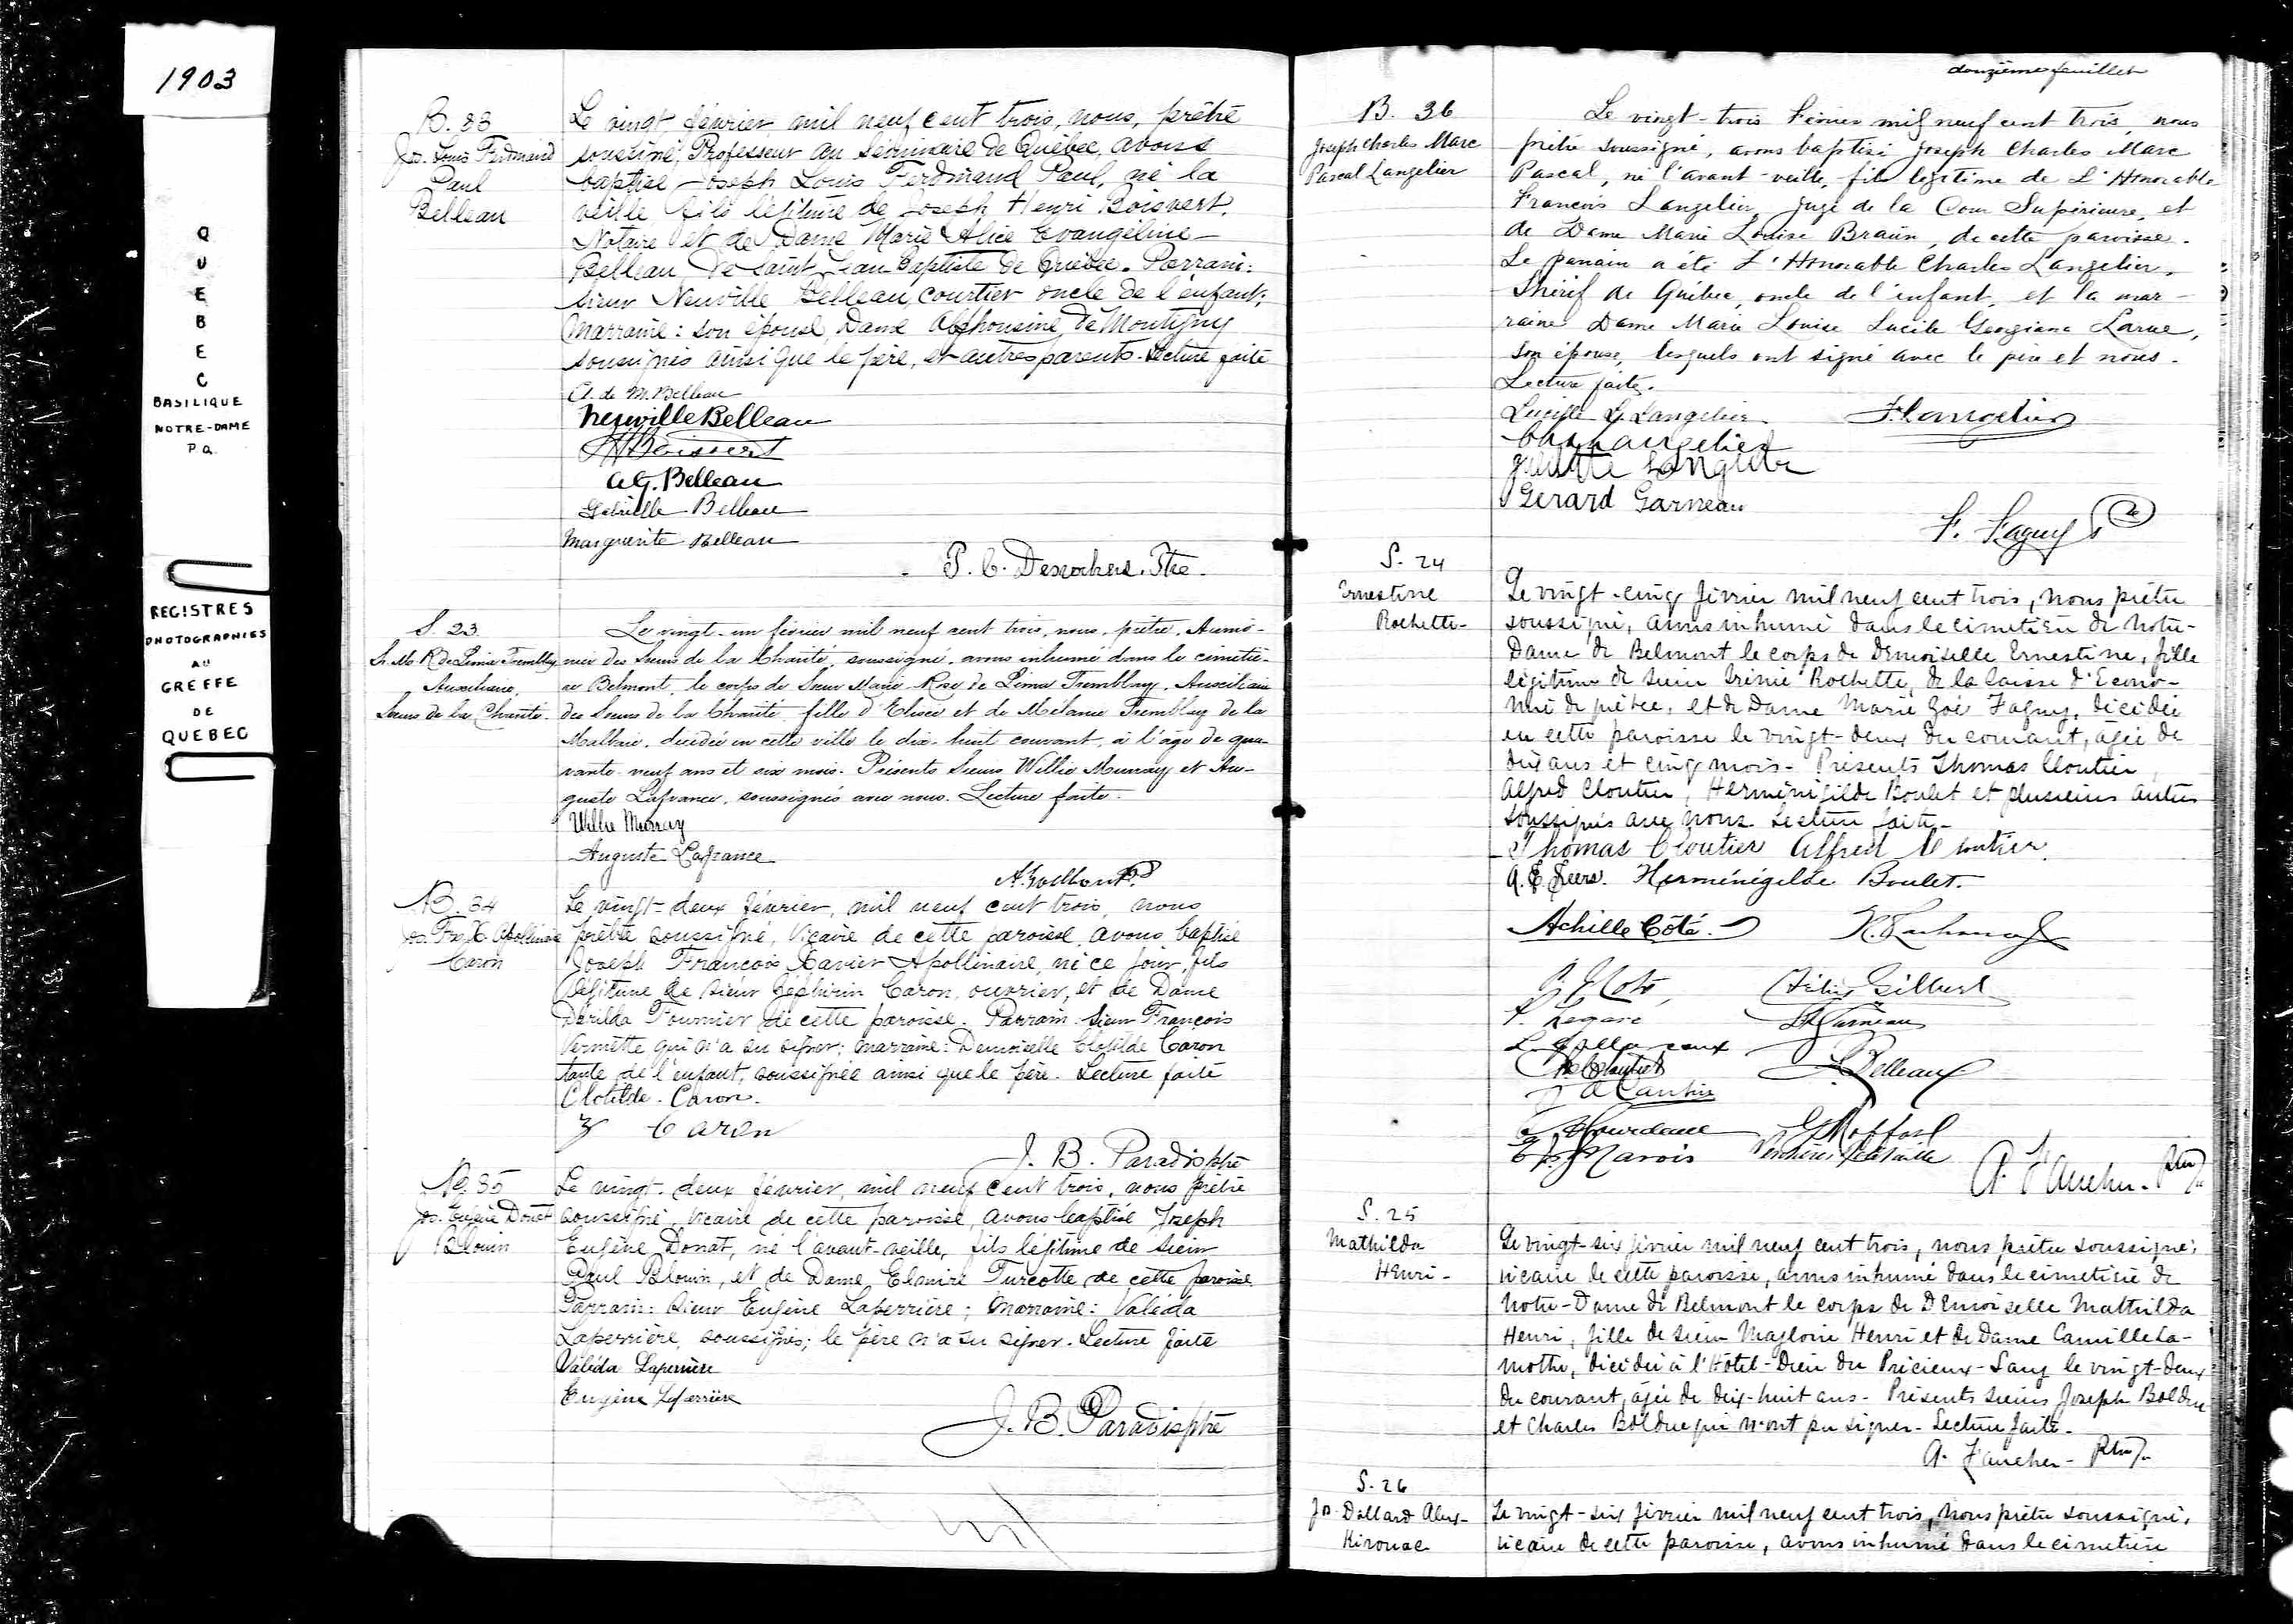 1903
QUEBEC
BASILIQUE
NOTRE-DAME
P.Q.
REGISTRES
PHOTOGRAPHIES
AU
GREFFE
DE
QUEBEC
B. 33
Js. Louis Ferdinand
Paul
Belleau
Le vingt février mil neuf cent trois, nous, prêtre
soussiné, Professeur au Séminaire de Québec, avons
baptisé Joseph Louis Ferdinand Paul, né la
veille fils légitime de Joseph Henri Boisvert,
Notaire et de Dame Marie Alice Evangeline
Belleau de Saint Jean Baptiste de Québec. Parrain:
sieur Neuville Belleau courtier oncle de l'enfant;
Marraine: son épouse, Dame Alphonsine de Montigny
soussignés ainsi que le père, et autres parents. Lecture faite
A. de M. Belleau
Neuville Belleau
JH Boisvert
A.G. Belleau
Gabrielle Belleau
Marguerite Belleau
P. C. Desrochers, Ptre.
S. 23.
Sr. M. R de Lima Tremblay
Auxiliaire,
Sœurs de la Charité.
Le vingt-un février mil neuf cent trois, nous, prêtre, Aumô-
nier des Sœurs de la Charité, soussigné, avons inhumé dans le cimetiè-
re Belmont, le corps de Sœur Marie-Rose de Lima Tremblay, Auxiliaire
des Sœurs de la Charité, fille d'Elisée et de Mélanie Tremblay de la
Malbaie, décédée en cette ville le dix-huit courant, à l'âge de qua-
rante-neuf ans et six mois. Présents Sieurs Willie Murray et Au-
guste Lafrance, soussignés avec nous. Lecture faite.
Willie Murray
Auguste Lafrance
B. 34
Jos. Frs. X. Apollinaire
Caron
Le vingt-deux février, mil neuf cent trois, nous
prêtre soussigné, Vicaire de cette paroisse, avons baptisé
Joseph François Xavier Apollinaire, né ce jour, fils
légitime de sieur Zéphirin Caron, ouvrier, et de Dame
Dérilda Fournier de cette paroisse. Parrain: sieur François
Vermette qui n'a su signer; marraine: Demoiselle Clotilde Caron
tante de l'enfant, soussignée ainsi que le père. Lecture faite
Clotilde Caron.
Z Caron
J. B. Paradis ptre
B. 35
Jos. Eugène Donat
Blouin
Le vingt-deux février, mil neuf cent trois, nous prêtre
soussigné, vicaire de cette paroisse, avons baptisé Joseph
Eugène Donat, né l'avant-veille, fils légitime de sieur
Paul Blouin, et de Dame Elmire Turcotte de cette paroisse
Parrain: sieur Eugène Laperrière; marraine: Valéda
Laperrière, soussignés; le père n'a su signer. Lecture faite
Valéda Laperrière
Eugène Laperrière
J. B. Paradis ptre
douzième feuillet
B. 36
Joseph Charles Marc
Pascal Langelier
Le vingt-trois Février mil neuf cent trois, nous
prêtre soussigné, avons baptisé Joseph Charles Marc
Pascal, né l'avant-veille, fils légitime de L'Honorable
François Langelier, Juge de la Cour Supérieure, et
de Dame Marie Louise Braün, de cette paroisse.
Le parrain a été L'Honorable Charles Langelier,
Shérif de Québec, oncle de l'enfant, et la mar-
raine Dame Marie Louise Lucile Georgiana Larue,
son épouse, lesquels ont signé avec le père et nous.
Lecture faite.
Lucille L. Langelier F. Langelier
Chs Langelier
Juliette Langelier
Gérard Garneau
F. Faguy
S. 24
Ernestine
Rochette-
Le vingt-cinq février mil neuf cent trois, nous prêtre
soussigné, avons inhumé dans le cimetière de Notre-
Dame de Belmont le corps de Demoiselle Ernestine, fille
légitime de Sieur Irénée Rochette, de la Caisse d'Econo-
mie de Québec, et de Dame Marie Zoé Faguy, décédée
en cette paroisse le vingt-deux du courant, âgée de
dix ans et cinq mois- Présents Thomas Cloutier,
Alfred Cloutier, Herménégilde Boulet et plusieurs autres
soussignés avec nous. Lecture faite-
Thomas Cloutier Alfred Cloutier
Herménégilde Boulet.
Achille Côté.
Gilbert
F. Legaré
Belleau
Marois
A. Faucher- Ptre
S. 25
Mathilda
Henri-
Le vingt-six février mil neuf cent trois, nous prêtre soussigné,
vicaire de cette paroisse, avons inhumé dans le cimetière de
Notre-Dame de Belmont le corps de Demoiselle Mathilda
Henri, fille de Sieur Magloire Henri et de Dame Camille La-
mothe, décédée à l'Hôtel-Dieu du Précieux-Sang le vingt-deux
du courant, âgée de dix-huit ans- Présents sieurs Joseph Bolduc
et Charles Bolduc qui n'ont pu signer- Lecture faite-
A. Faucher- Ptre
S. 26
Js. Dollard Alex-
Kirouac
Le vingt-six février mil neuf cent trois, nous prêtre soussigné,
vicaire de cette paroisse, avons inhumé dans le cimetière